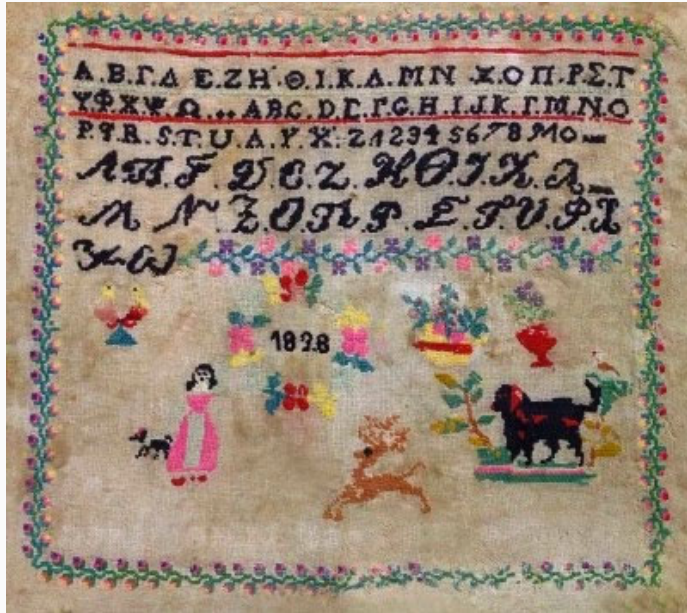 Α.Β.Γ.Δ Ε.Ζ Η.Θ.Ι.Κ.Λ.Μ Ν.Ξ.Ο.Π.Ρ Σ.Τ
Υ.Φ.Χ.Ψ.Ω...A B C.D.Γ.Γ.G.H.I.J K.Γ.M.N.O
P.q.R.S.T.U.Λ.Y.X.Z 1 2 3 9 4 5 6 7 8 9 1 0
Α.Β.Γ.D.Ε.Ζ.Η.Θ.Ι.Κ.Λ
Μ.Ν.Ξ.Ο.Π.Ρ.Σ.Τ.U.Φ.Χ
Ψ.Ω
1898